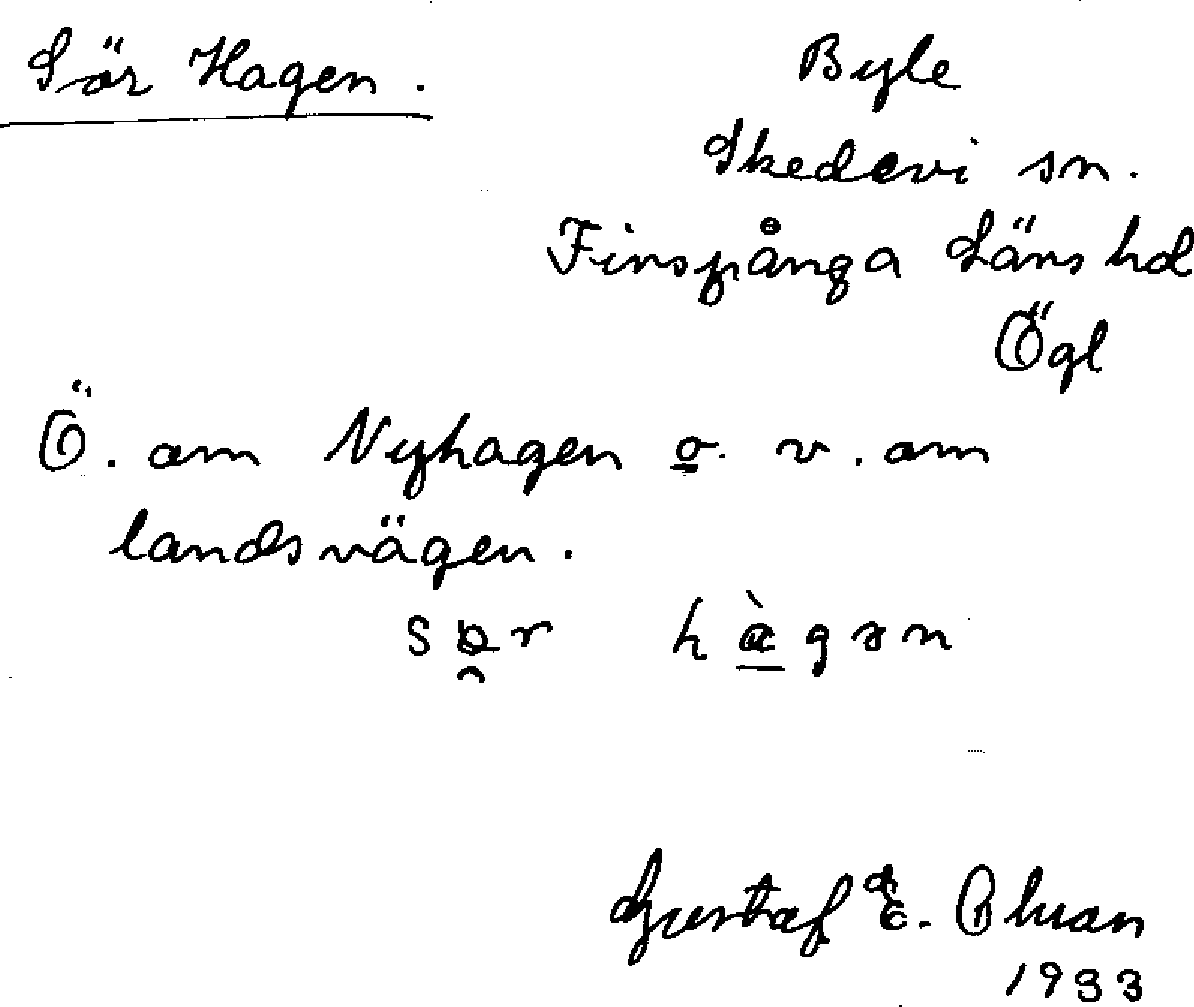 Sör Hagen.
Byle
Skedevi sn.
Finspånga Läns hd
Ögl
Ö. om Nyhagen o. v. om
landsvägen.
Gustaf E.
1933